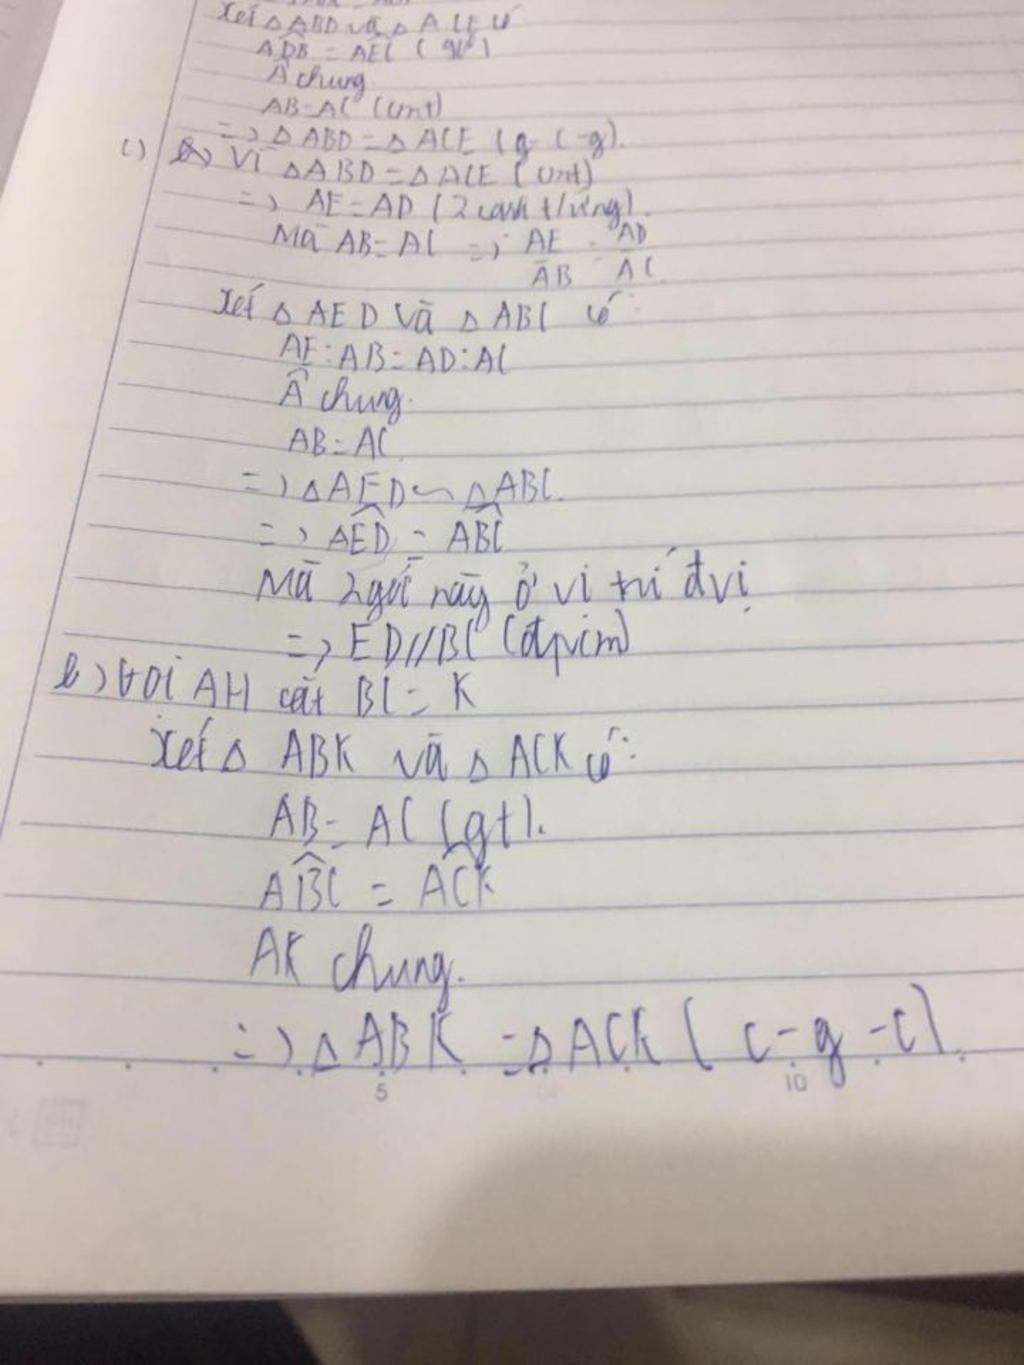 Xét △ ABD và △ ACE có
ADB = AEC ( gt )
Â chung
AB = AC (cmt)
=> △ ABD = △ ACE ( g-c-g).
c) Vì △ABD = △ACE (cmt)
=> AE = AD (2 cạnh t/ứng).
Mà AB = AC => AE/AB = AD/AC
Xét △ AED và △ ABC có:
AE : AB = AD : AC
Â chung.
AB = AC
=> △ AED ∽ △ABC.
=> AED = ABC
Mà 2 góc này ở vị trí đvị
=> ED // BC (đpcm)
b) Gọi AH cắt BC = K
Xét △ ABK và △ ACK có:
AB = AC (gt).
ABC = ACK
AK chung.
=> △ ABK = △ ACK ( c - g - c ).
5 10